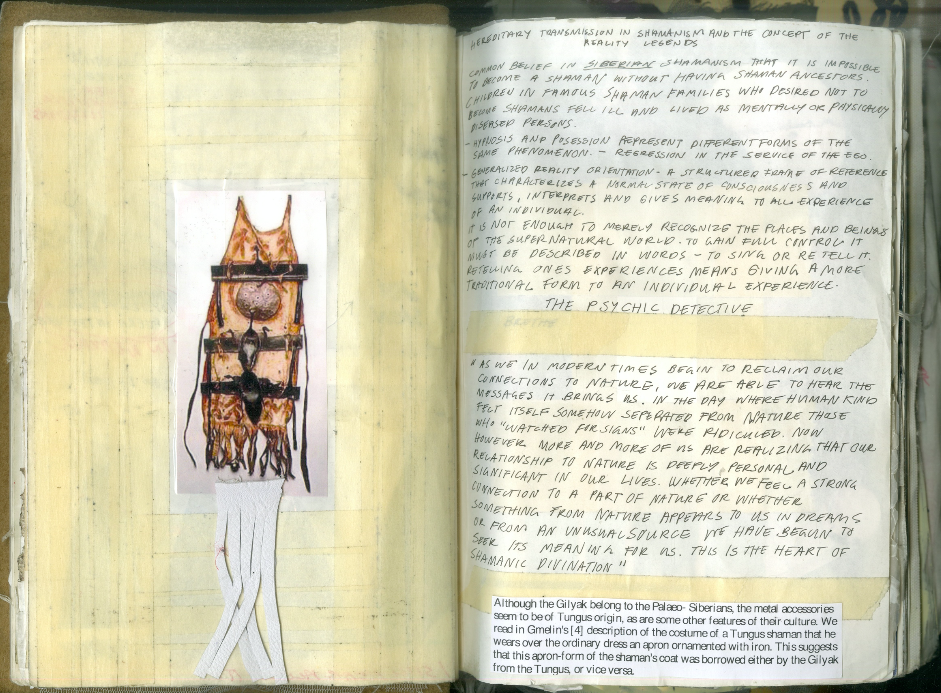 HEREDITARY TRANSMISSION IN SHAMANISM AND THE CONCEPT OF THE
REALITY LEGENDS
COMMON BELIEF IN SIBERIAN SHAMANISM THAT IT IS IMPOSSIBLE
TO BECOME A SHAMAN WITHOUT HAVING SHAMAN ANCESTORS.
CHILDREN IN FAMOUS SHAMAN FAMILIES WHO DESIRED NOT TO
BECOME SHAMANS FELL ILL AND LIVED AS MENTALLY OR PHYSICALLY
DISEASED PERSONS.
- HYPNOSIS AND POSESSION REPRESENT DIFFERENT FORMS OF THE
SAME PHENOMENON. - REGRESSION IN THE SERVICE OF THE EGO.
- GENERALIZED REALITY ORIENTATION - A STRUCTURED FRAME OF REFERENCE
THAT CHARACTERIZES A NORMAL STATE OF CONSCIOUGNESS AND
SUPPORTS, INTERPRETS AND GIVES MEANING TO ALL EXPERIENCE
OF AN INDIVIDUAL.
IT IS NOT ENOUGH TO MERELY RECOGNIZE THE PLACES AND BEINGS
OF THE SUPERNATURAL WORLD. TO GAIN FULL CONTROL IT
MUST BE DESCRIBED IN WORDS - TO SING OR RE TELL IT.
RETELLING ONES EXPERIENCES MEANS GIVING A MORE
TRADITIONAL FORM TO AN INDIVIDUAL EXPERIENCE.
THE PSYCHIC DETECTIVE
"AS WE IN MODERN TIMES BEGIN TO RECLAIM OUR
CONNECTIONS TO NATURE, WE ARE ABLE TO HEAR THE
MESSAGES IT BRINGS US. IN THE DAY WHERE HUMAN KIND
FELT ITSELF SOMEHOW SEPERATED FROM NATURE THOSE
WHO "WATCHED FOR SIGNS" WERE RIDICULED. NOW
HOWEVER MORE AND MORE OF US ARE REALIZING THAT OUR
RELATIONSHIP TO NATURE IS DEEPLY, PERSONAL AND
SIGNIFICANT IN OUR LIVES. WHETHER WE FEEL A STRONG
CONNECTION TO A PART OF NATURE OR WHETHER
SOMETHING FROM NATURE APPEARS TO US IN DREAMS
OR FROM AN UNUSUAL SOURCE WE HAVE BEGUN TO
SEEK ITS MEANING FOR US. THIS IS THE HEART OF
SHAMANIC DIVINATION"
Although the Gilyak belong to the Palaeo- Siberians, the metal accessories
seem to be of Tungus origin, as are some other features of their culture. We
read in Gmelin's [4] description of the costume of a Tungus shaman that he
wears over the ordinary dress an apron ornamented with iron. This suggests
that this apron-form of the shaman's coat was borrowed either by the Gilyak
from the Tungus, or vice versa.